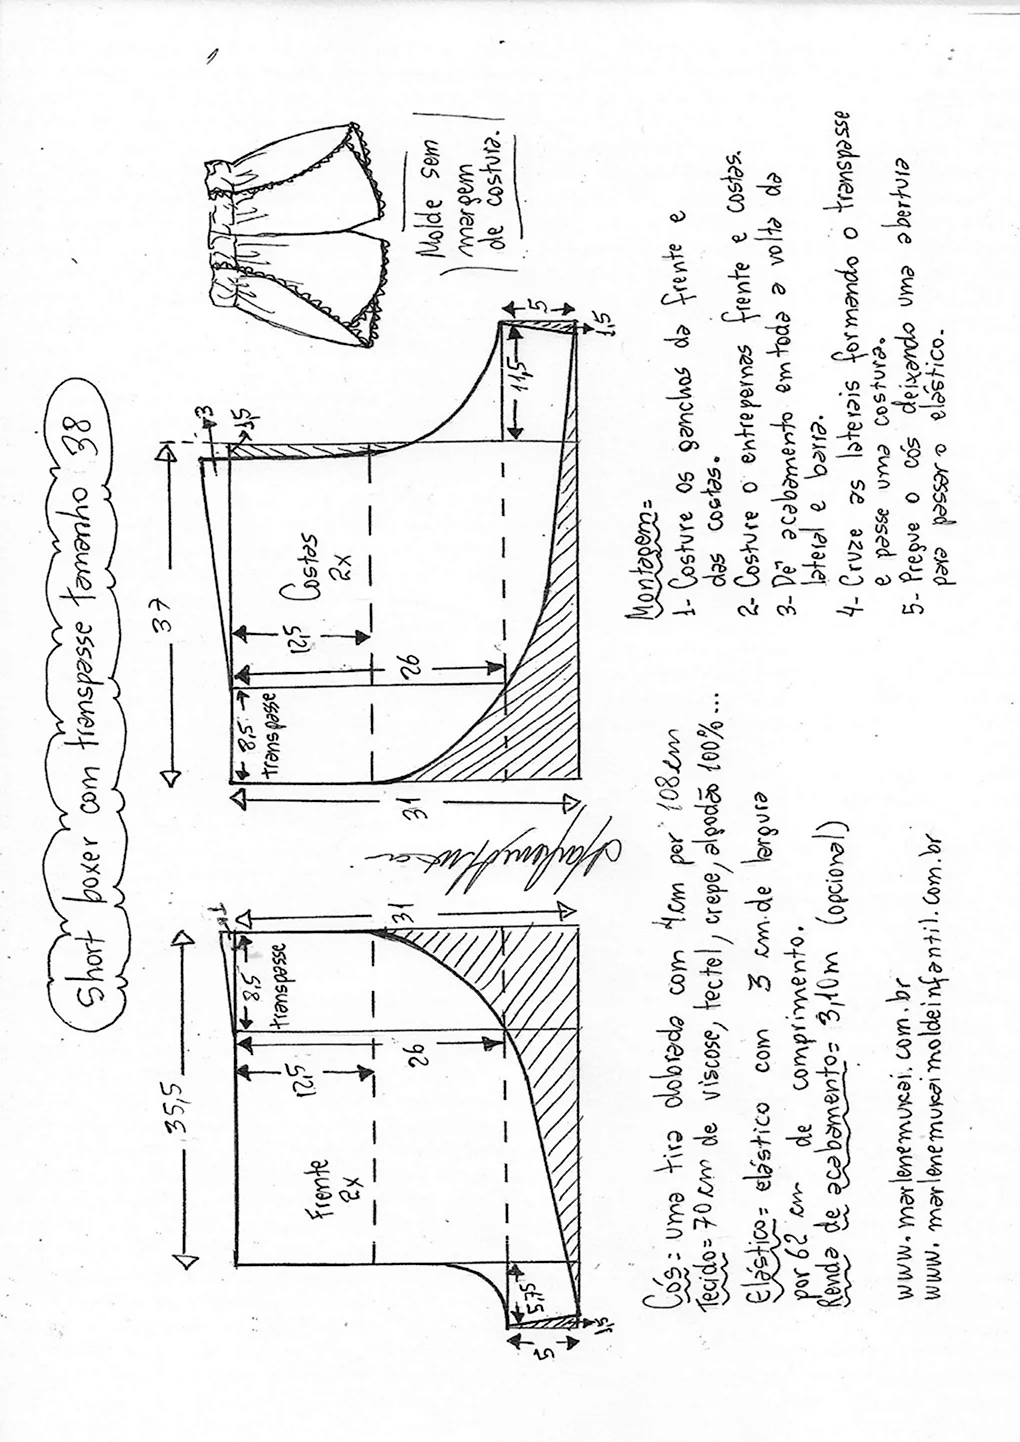 Short boxer com transpasse tamanho 38
35,5
1
8,5
transpasse
12,5
26
31
Frente
2x
5,75
5
1,5
37
3
1,5
8,5
transpasse
12,5
26
31
Costas
2x
11,5
5
1,5
Molde sem
margem
de costura.
Cós: uma tira dobrada com 4cm por 108cm
Tecido= 70 cm de viscose, tectel, crepe, algodão 100%...
Elástico= elástico com 3 cm de largura
por 62 cm de comprimento.
Renda de acabamento= 3,10m (opcional)
www.marlenemukai.com.br
www.marlenemukaimoldeinfantil.com.br
Montagem=
1- Costure os ganchos da frente e
das costas.
2- Costure o entrepernas frente e costas.
3- Dê acabamento em toda a volta da
lateral e barra.
4- Cruze as laterais formando o transpasse
e passe uma costura.
5- Pregue o cós deixando uma abertura
para passar o elástico.